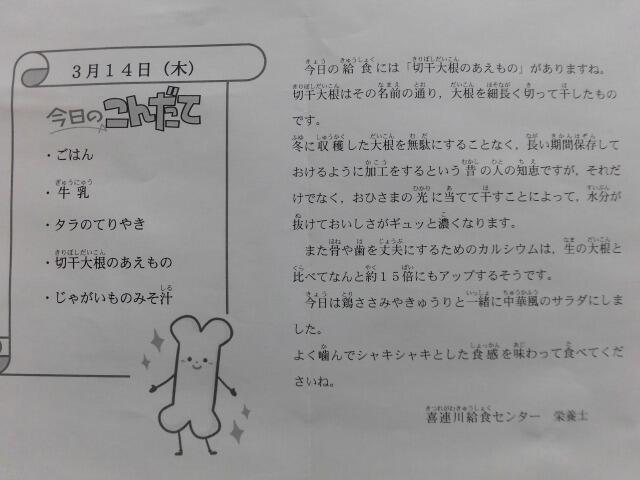 3月14日（木）
今日のこんだて
・ごはん
・牛乳
・タラのてりやき
・切干大根のあえもの
・じゃがいものみそ汁
今日の給食には「切干大根のあえもの」がありますね。
切干大根はその名前の通り，大根を細長く切って干したもの
です。
冬に収穫した大根を無駄にすることなく，長い期間保存して
おけるように加工をするという昔の人の知恵ですが，それだ
けでなく，おひさまの光に当てて干すことによって，水分が
抜けておいしさがギュッと濃くなります。
また骨や歯を丈夫にするためのカルシウムは，生の大根と
比べてなんと約15倍にもアップするそうです。
今日は鶏ささみやきゅうりと一緒に中華風のサラダにしま
した。
よく噛んでシャキシャキとした食感を味わって食べてくだ
さいね。
喜連川給食センター　栄養士